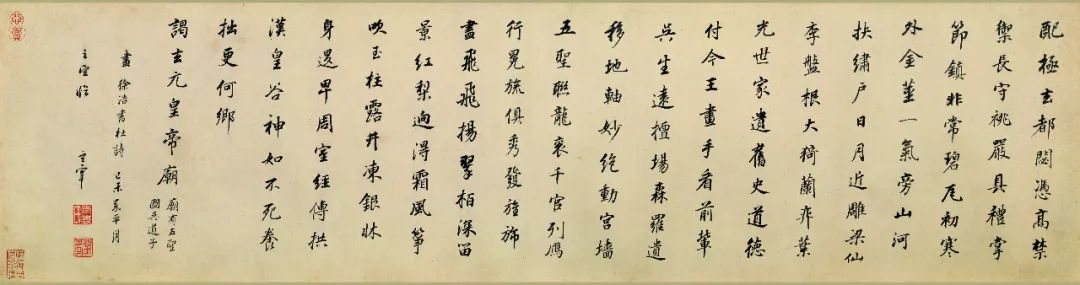 配極玄都閟憑高禁
禦長守祧嚴具禮掌
節鎮非常碧瓦初寒
外金莖一氣旁山河
扶繡戶日月近雕梁仙
李盤根大猗蘭奕葉
光世家遺舊史道德
付今王畫手看前輩
吳生遠擅場森羅遺
移地軸妙絕動宮墻
五聖聯龍袞千官列鴈
行冕旒俱秀發旌旆
盡飛飛揚翠柏深留
景紅梨迥得霜風箏
吹玉柱露井凍銀牀
身退卑周室經傳拱
漢皇谷神如不死養
拙更何鄉
謁玄元皇帝廟
廟有五聖
圖吳道子
畫
徐浩書杜詩
己未嘉平月
玄宰臨
玄宰